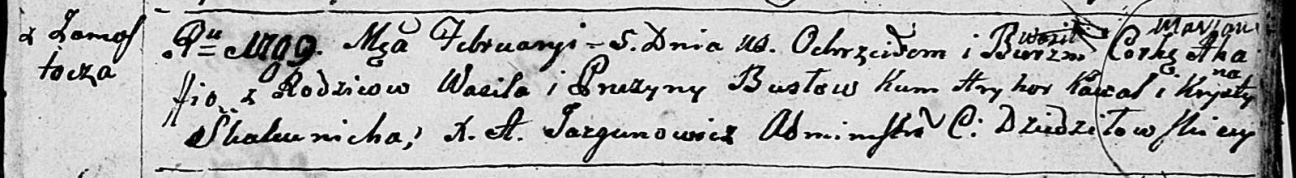 z Zamos
tocza
Ru 1799. Mca Februaryi - 5. Dnia us. Ochrzciłem i Bierzm Corkę Aha
fię z Rodzicow Wasila i Pruzyny Busłow Kum Hryhor Kawal i Krysty
na
Skakunicha, X. A. Jazgunowicz Administr C. Dziedziłowskiey